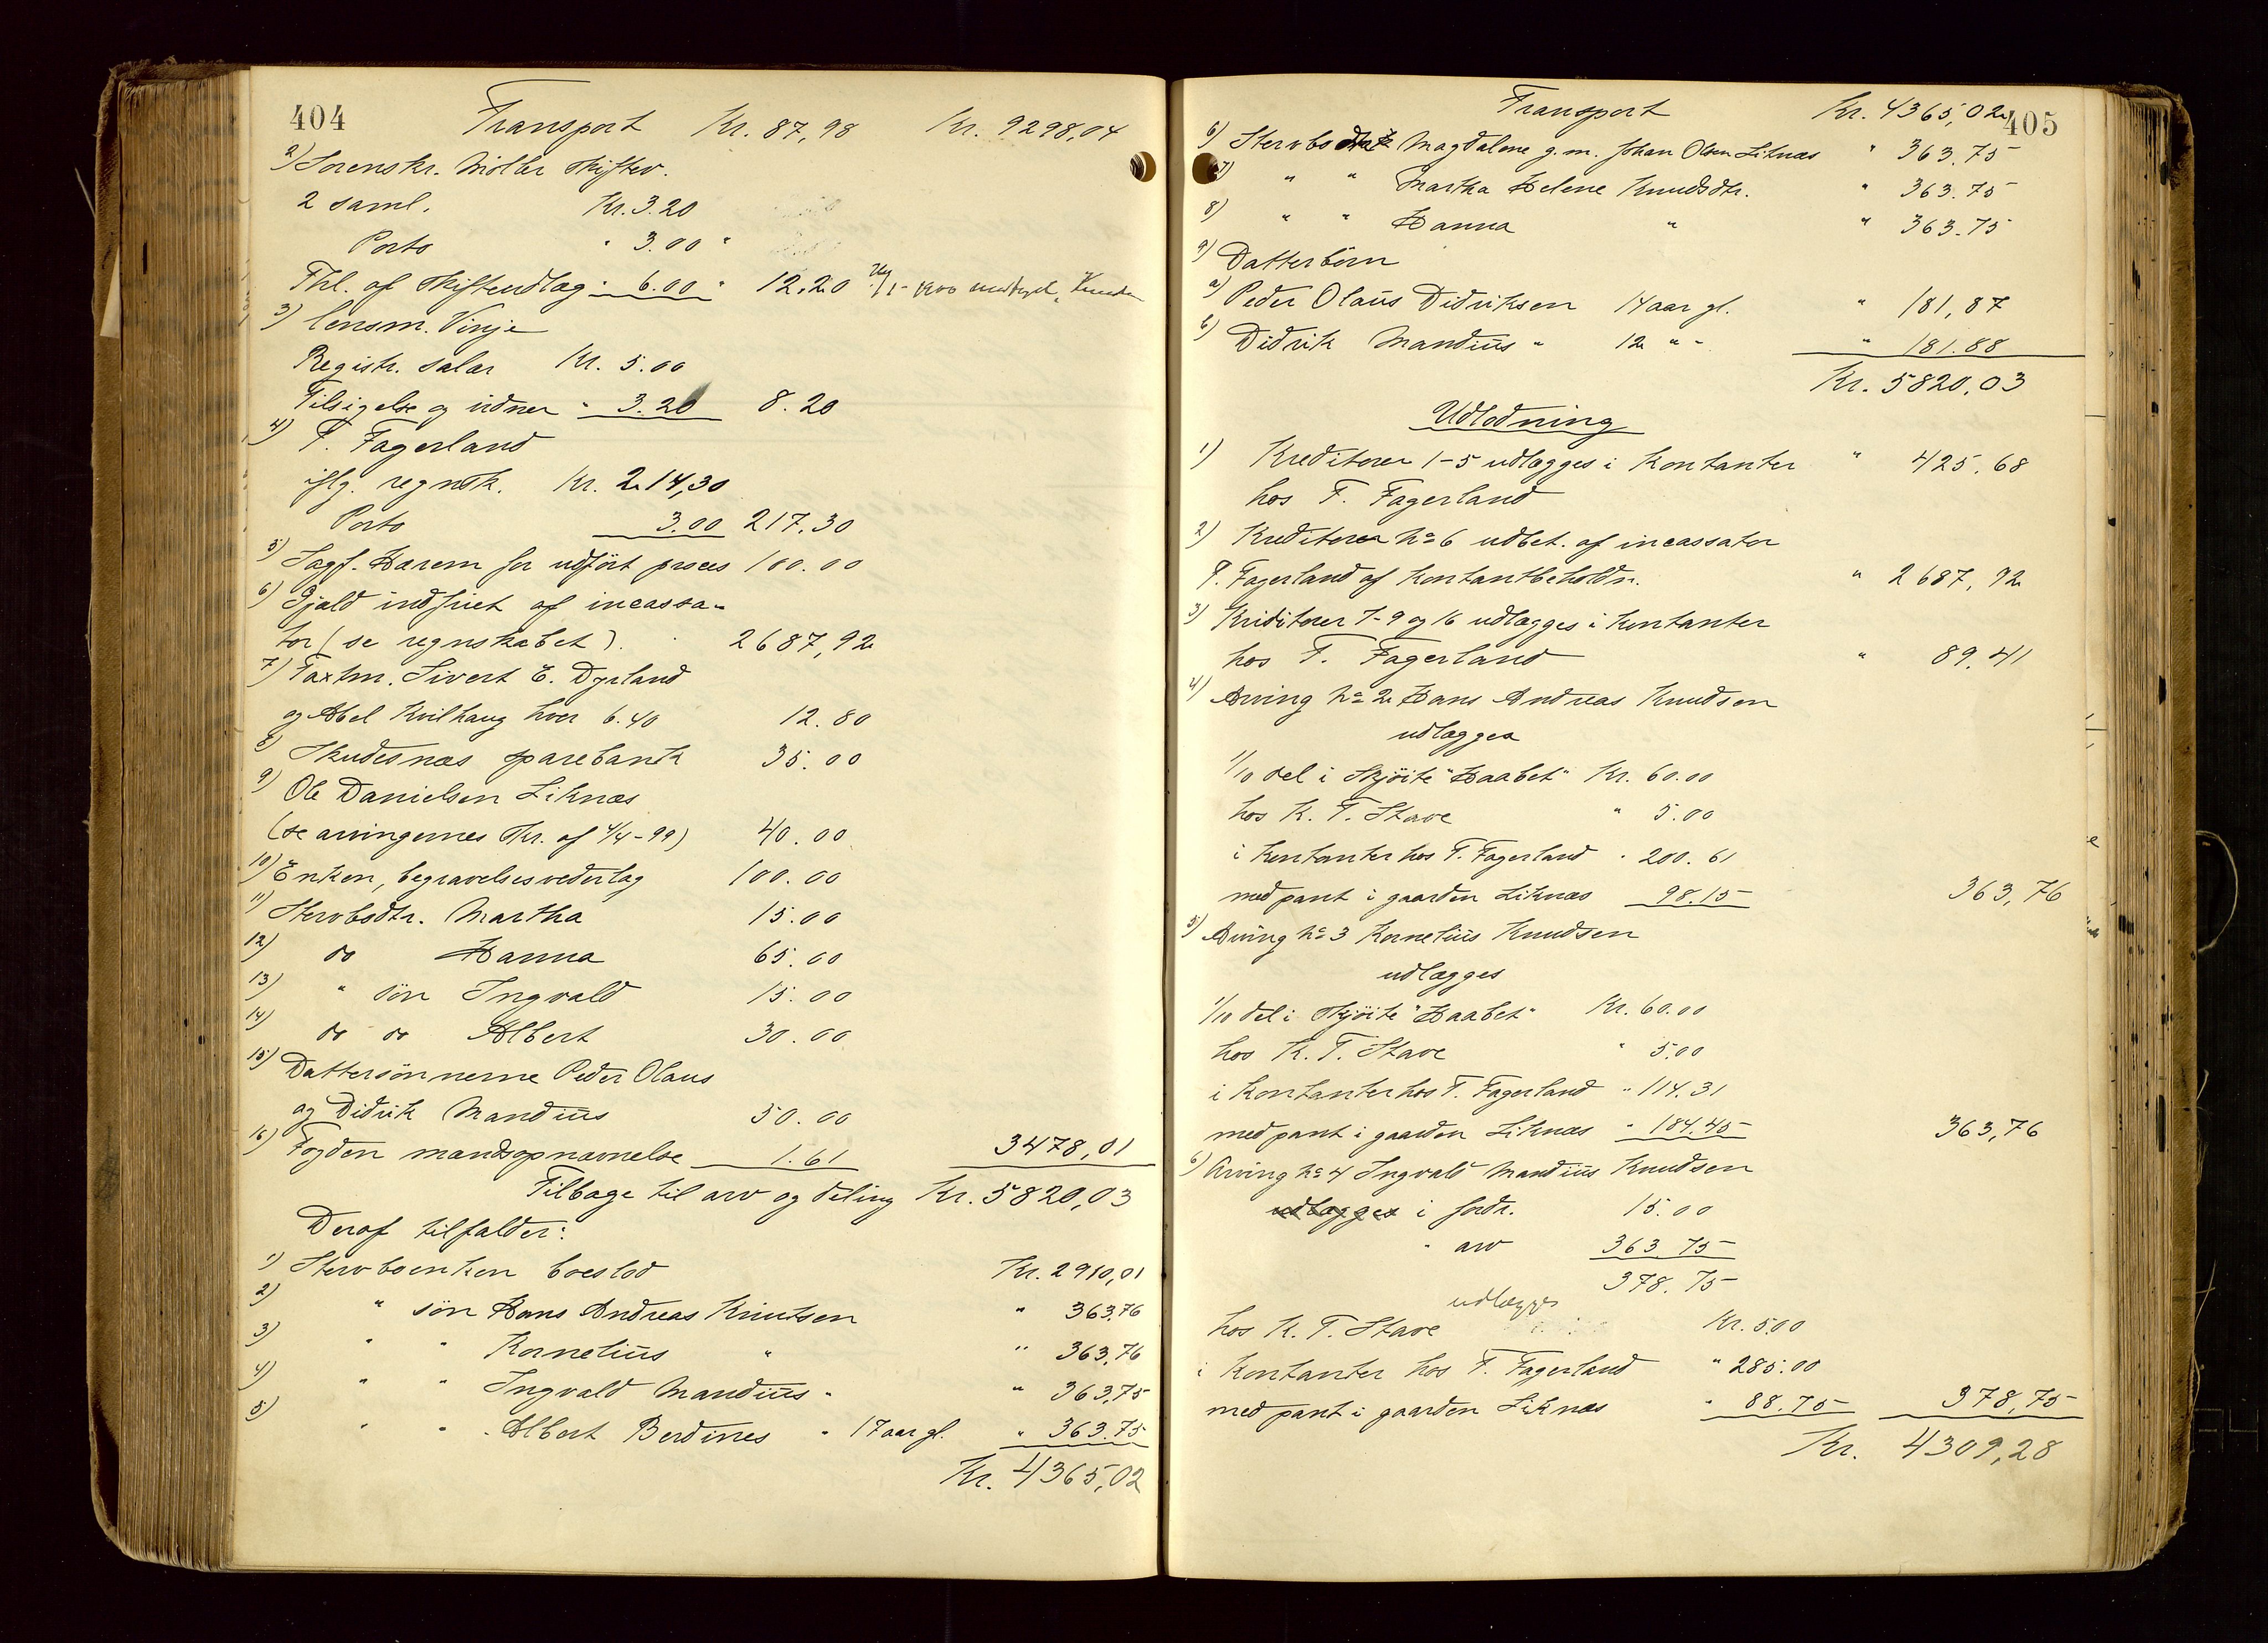 404
Transport Kr. 87,98 Kr. 9298,04
2) Sorenskr. Møller skiftev.
2 saml. Kr. 3.20
Porto " 3.00 "
Thl. af skifteudlæg " 6.00 " 12.20
3) lensm. Vinje
Registr. salar Kr. 5.00
Tilsigelse og vidner " 3.20 8.20
4) T. Fagerland
iflg. regnsk. Kr. 214,30
Porto 3.00 217.30
5) Sagf. Harem for udført proces 100.00
6) Gjæld indfriet af incassa-
tor (se regnskabet). 2687,92
7) Taxtm. Sivert E. Dyrland
og Abel Kvilhaug hver 6.40 12.80
8) Skudesnæs sparebank 35.00
9) Ole Danielsen Liknæs
(se arvingernes skr. af 4/4-99) 40.00
10) Enken, begravelsesvederlag 100.00
11) Stervbodtr. Martha 15.00
12) do Hanna 65.00
13) " søn Ingvald 15.00
14) do do Albert 30.00
15) Dattersønnerne Peder Olaus
og Didrik Mandius 50.00
16) Fogden mandsopnævnelse 1.61 3478,01
Tilbage til arv og deling Kr. 5820,03
Deraf tilfalder:
1) Stervboenken boeslod Kr. 2910,01
2) " søn Hans Andreas Knutsen " 363,76
3) " " Kornelius " " 363,76
4) " " Ingvald Mandius " " 363,75
5) " " Albert Berdines " 17 aar gl. " 363.75
Kr. 4365,02
405
Transport Kr. 4365,02
6) Stervbodtr Magdalene g.m. Johan Olsen Liknæs " 363.75
7) " " Martha Helene Knudsdtr. " 363.75
8) " " Hanna " " 363.75
9) Datterbørn
a) Peder Olaus Didriksen 14 aar gl. " 181,87
b) Didrik Mandius " 12 " " " 181.88
Kr. 5820,03
Udlodning
1) Kreditorer 1-5 udlægges i Kontanter " 425.68
hos T. Fagerland
2) Kreditorer No 6 udbet. af incassator
T. Fagerland af Kontantbeholdn. " 2687,92
3) Kriditorer 7-9 og 16 udlægges i Kontanter
hos T. Fagerland " 89.41
4) Arving No 2 Hans Andreas Knudsen
udlægges
1/10 del i Skjøite "Haabet" Kr. 60.00
hos K. T. Stave " 5.00
i Kontanter hos T. Fagerland " 200.61
med pant i gaarden Liknæs 98.15 363,76
5) Arving No 3 Kornelius Knudsen
udlægges
1/10 del i Skjøite "Haabet" Kr. 60.00
hos K. T. Stave " 5.00
i Kontanter hos T. Fagerland " 114.31
med pant i gaarden Liknæs " 184.45 363,76
6) Arving No 4 Ingvald Mandius Knudsen
udlægges i fordr. 15.00
" arv 363.75
378.75
udlægges
hos K. T. Stave Kr. 5.00
i Kontanter hos T. Fagerland " 285.00
med pant i gaarden Liknæs " 88.75 378,75
Kr. 4309,28